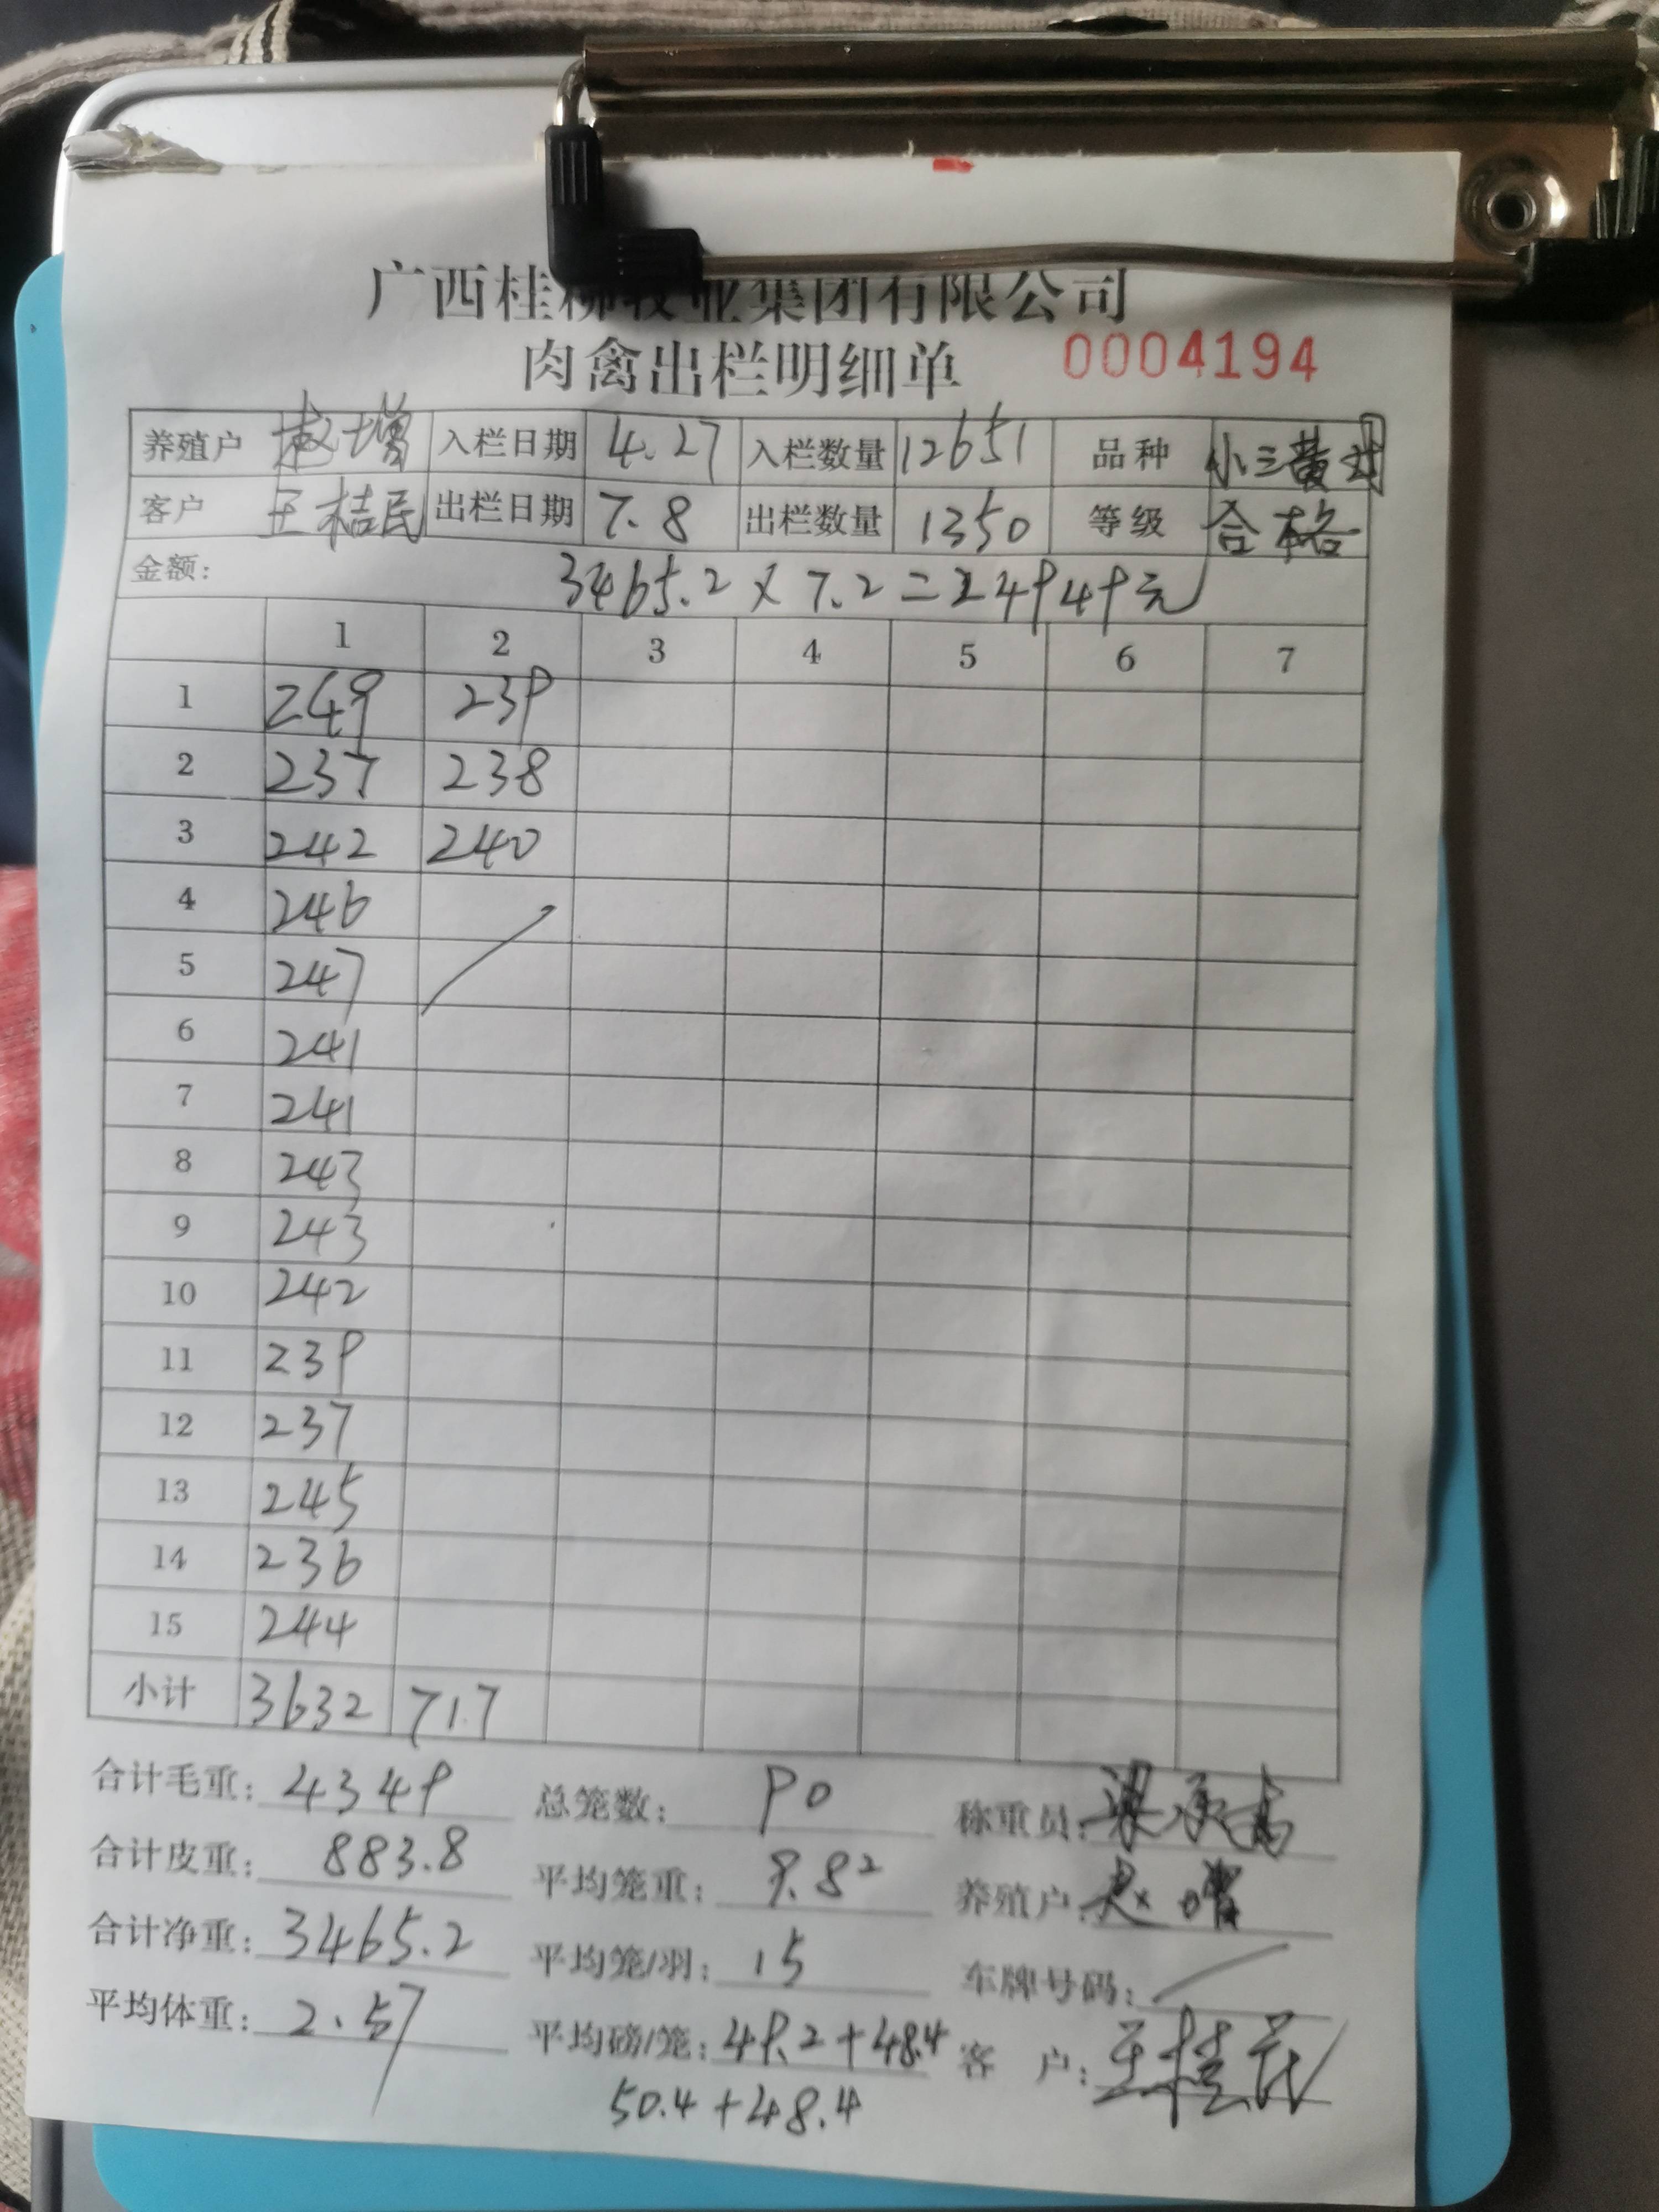 广西桂柳牧业集团有限公司
肉禽出栏明细单 0004194
养殖户 赵增 入栏日期 4.27 入栏数量 12651 品种 小三黄
客户 王桂民 出栏日期 7.8 出栏数量 1350 等级 合格
金额: 3465.2 × 7.2 = 24949元
1 2 3 4 5 6 7
1 249 239
2 237 238
3 242 240
4 246
5 247
6 241
7 241
8 243
9 243
10 242
11 239
12 237
13 245
14 236
15 244
小计 3632 717
合计毛重: 4349 总笼数: 90 称重员:
合计皮重: 883.8 平均笼重: 9.82 养殖户: 赵增
合计净重: 3465.2 平均笼/羽: 15 车牌号码:
平均体重: 2.57 平均磅/笼: 49.2+48.4 客 户: 王桂民
50.4+48.4